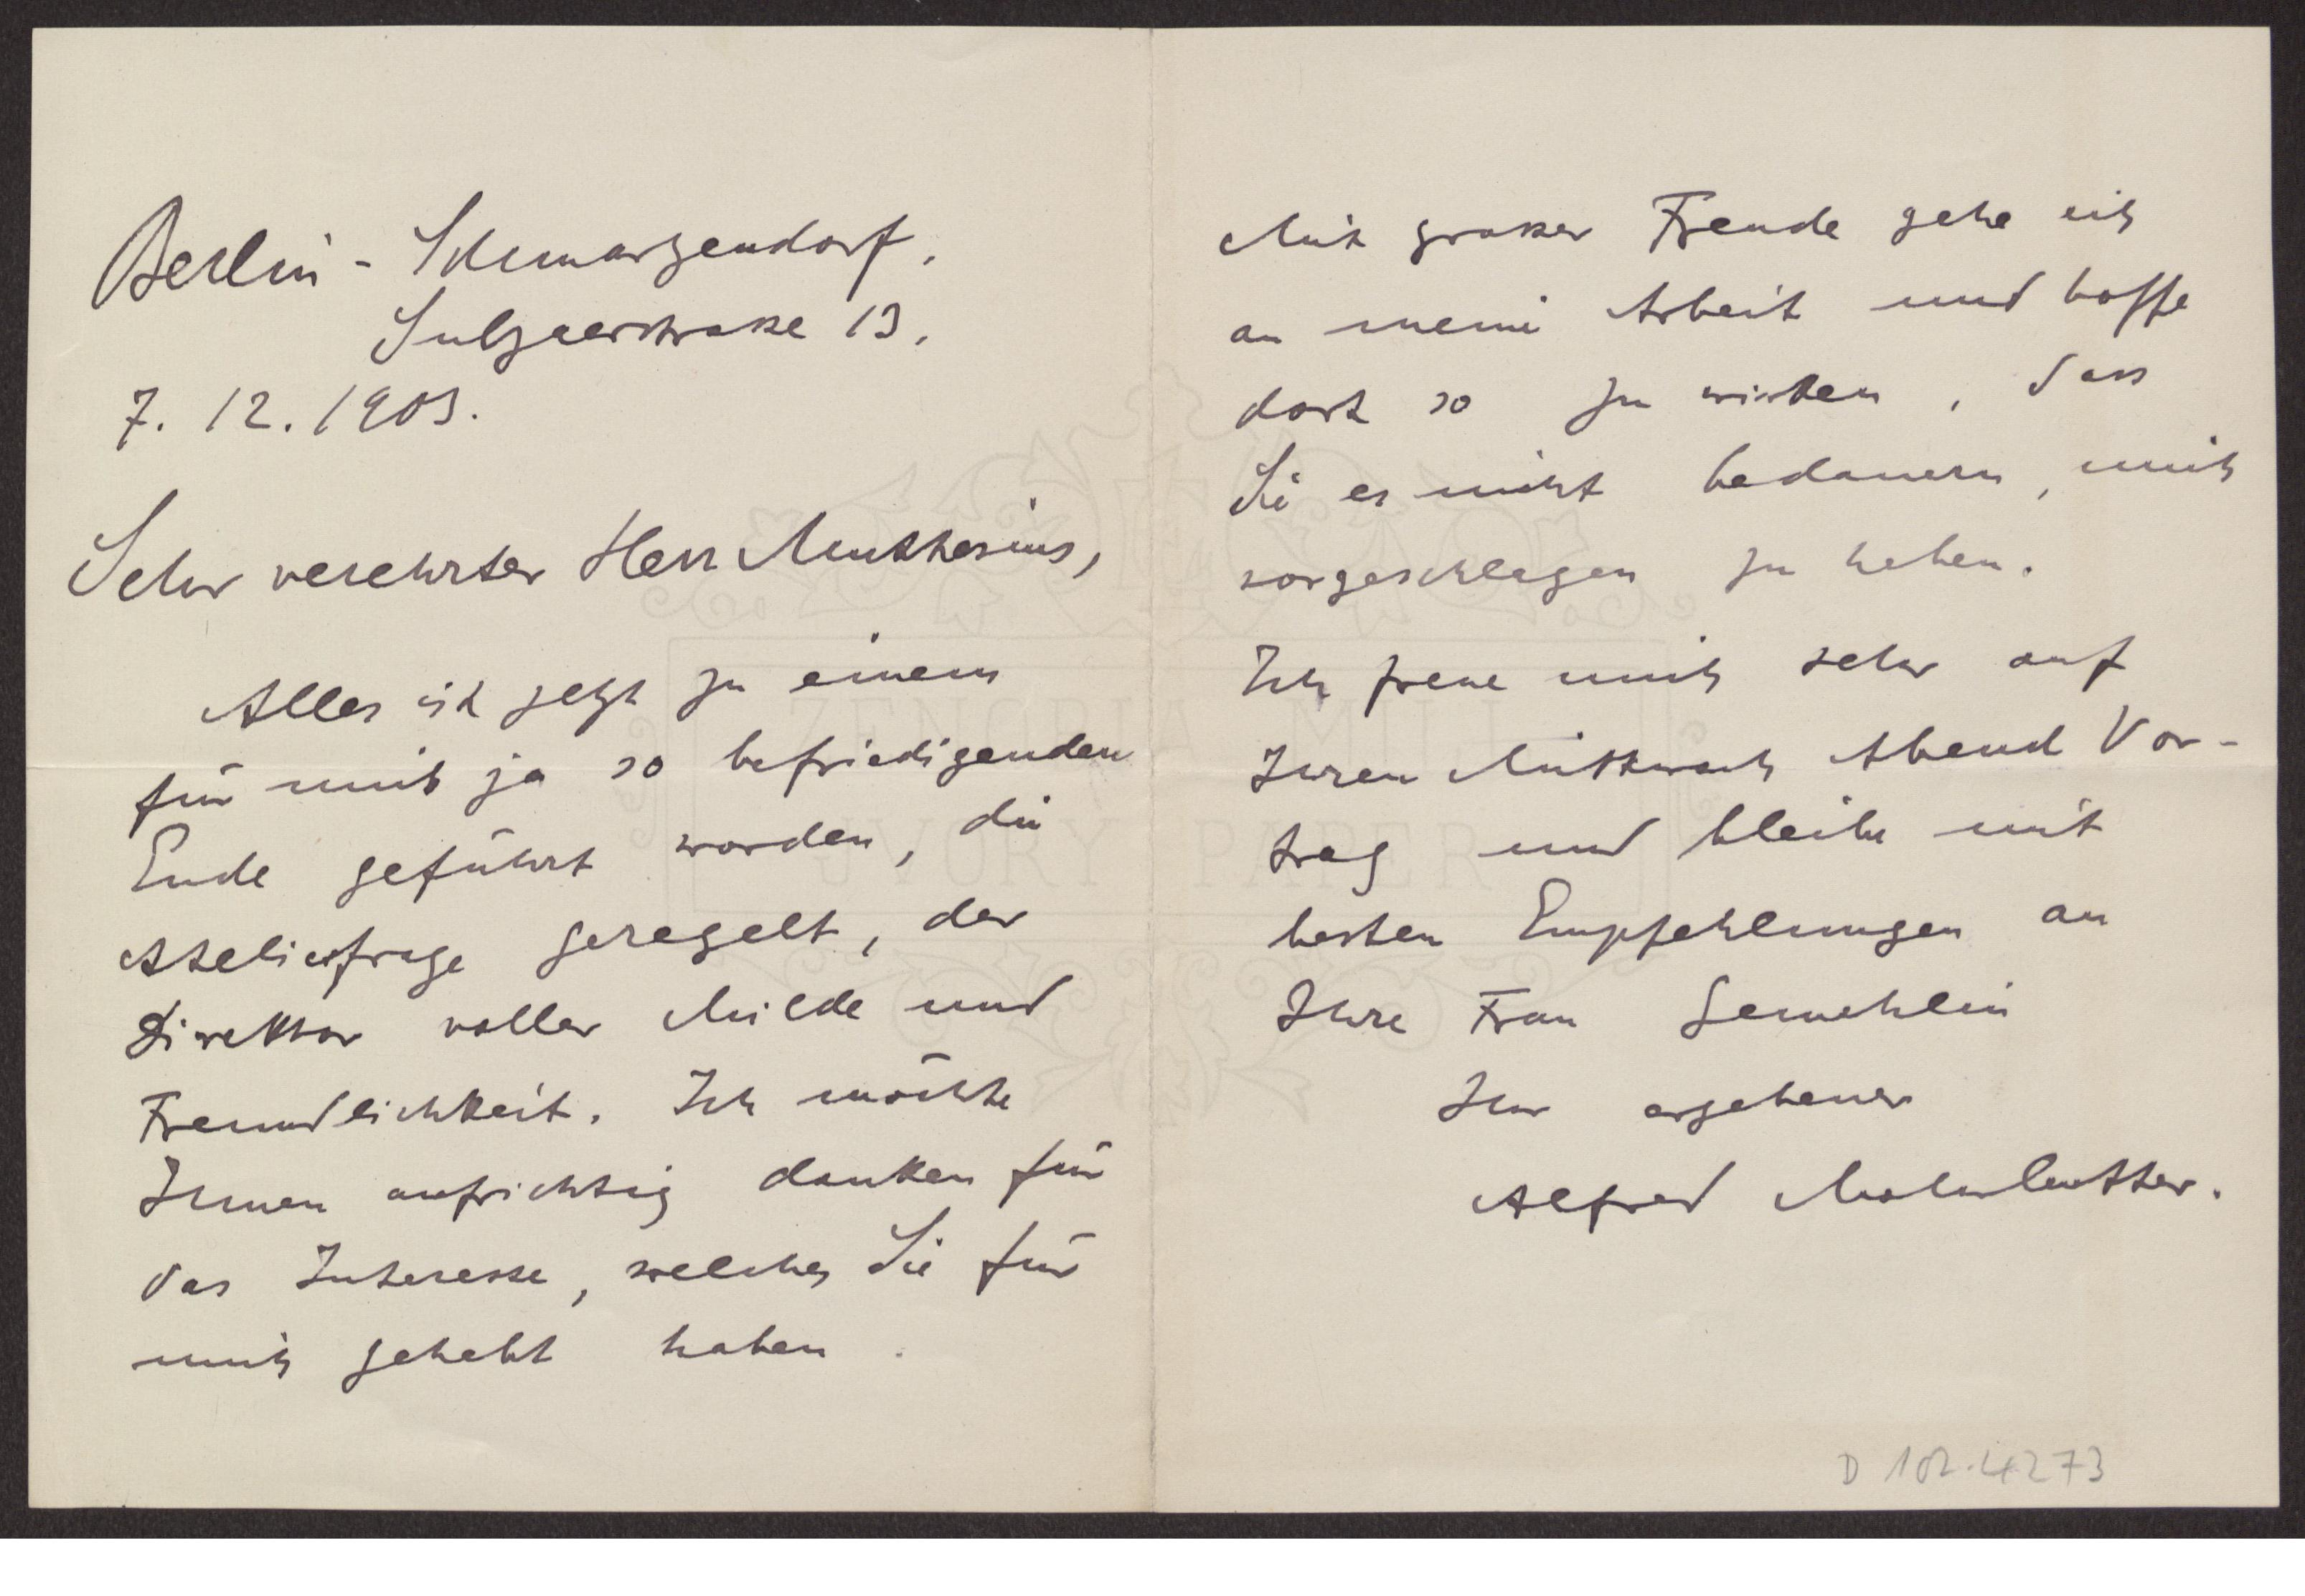 Berlin - Schmargendorf.
Sulzaerstrasse 13.
7. 12. 1903.
Sehr verehrter Herr Muthesius,
Alles ist jetzt zu einem
für mich ja so befriedigenden
Ende geführt worden, die
Atelierfrage geregelt, der
Direktor voller Milde und
Freundlichkeit. Ich möchte
Ihnen aufrichtig danken für
das Interesse, welches Sie für
mich gehabt haben.
Mit grosser Freude gehe ich
an meine Arbeit und hoffe
dort so zu wirken, dass
Sie es nicht bedauern, mich
vorgeschlagen zu haben.
Ich freue mich sehr auf
Ihren Mittwoch Abend Vor-
trag und bleibe mit
besten Empfehlungen an
Ihre Frau Gemahlin
Ihr ergebener
Alfred Mohrbutter.
ZENOBIA MILL
IVORY PAPER
D 102-4273